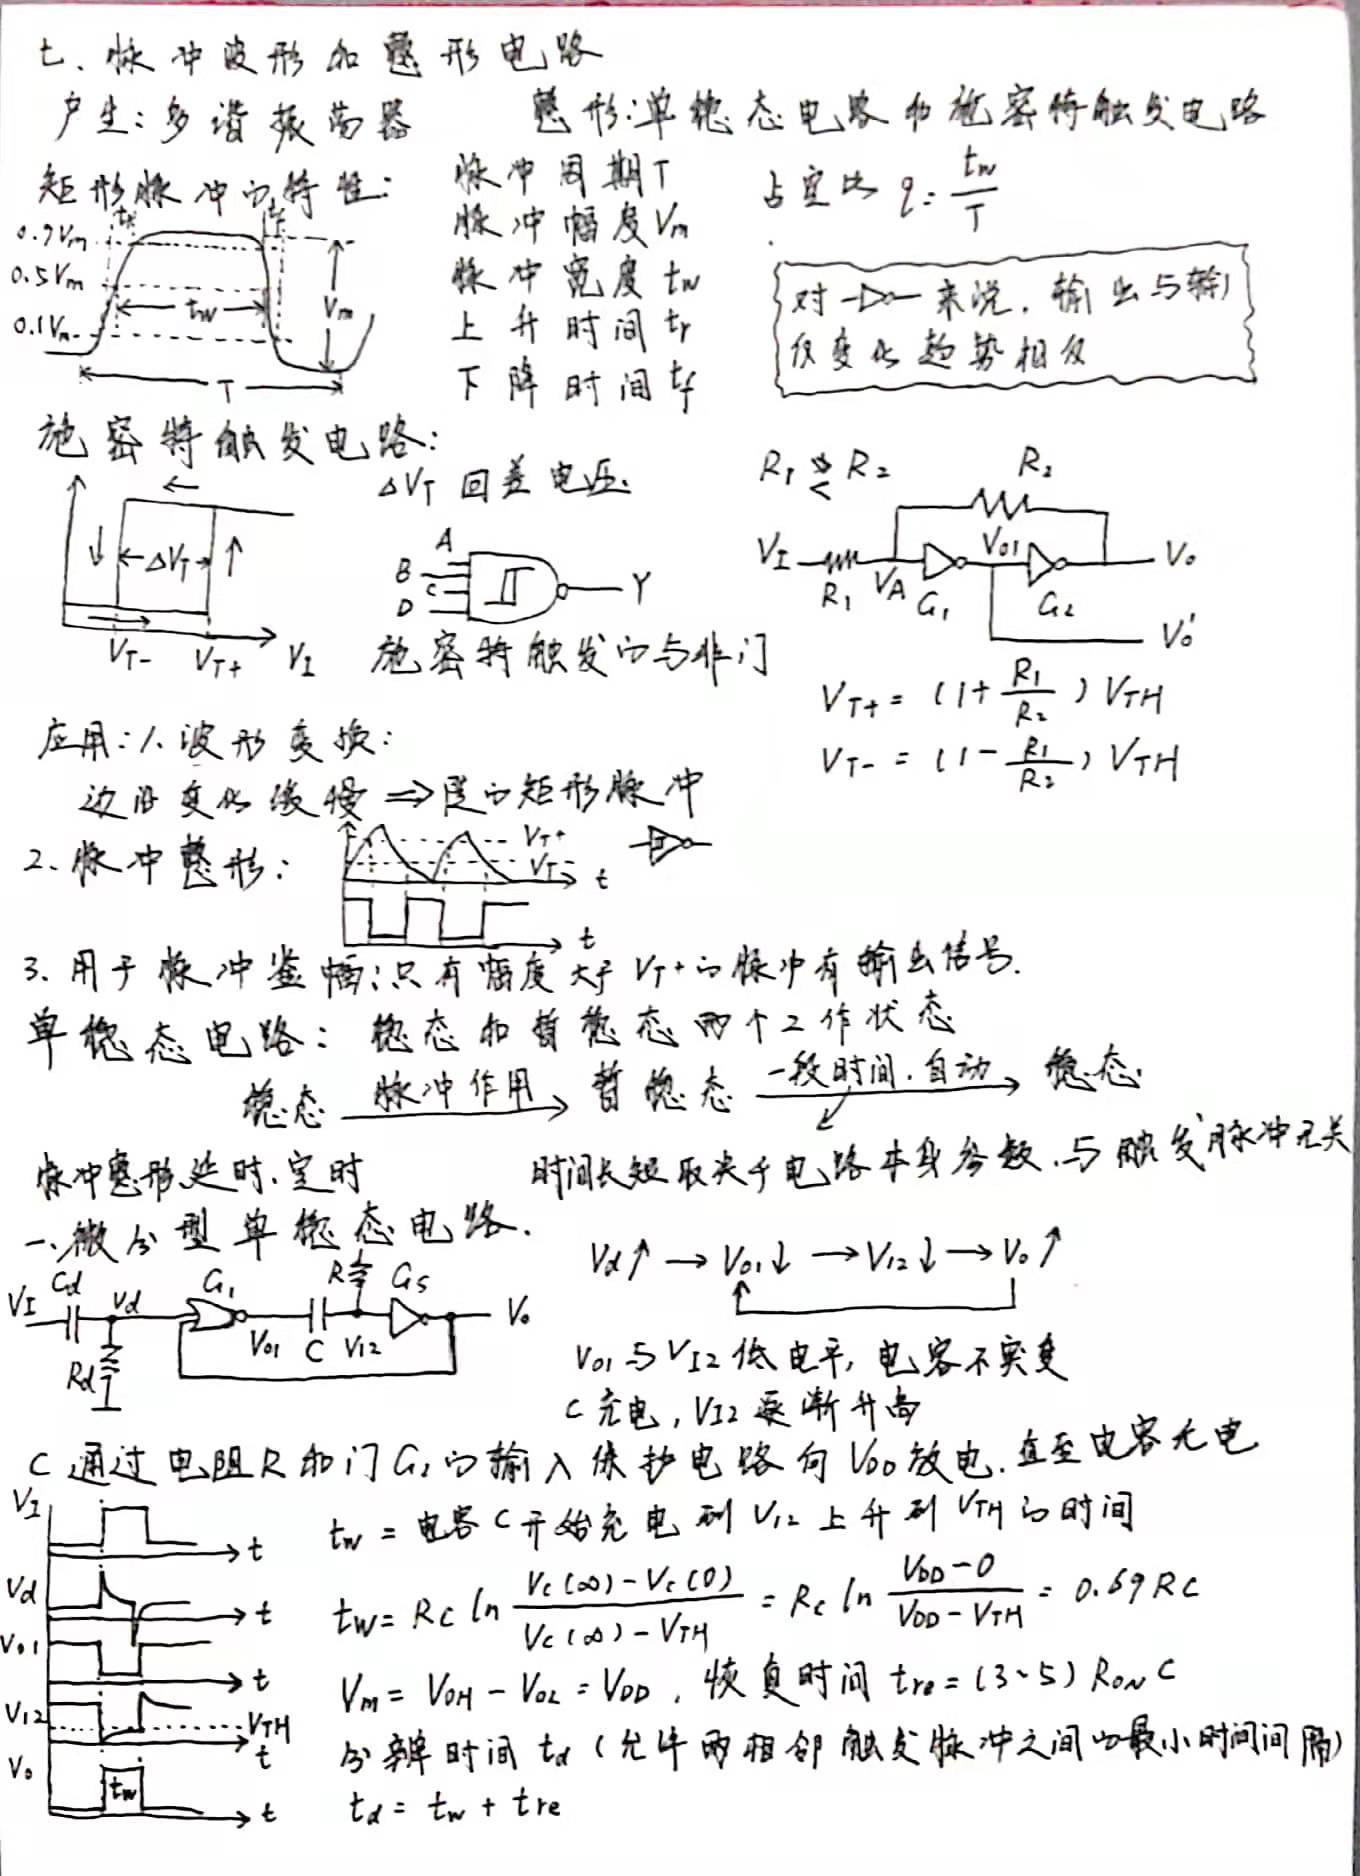 七、脉冲波形和整形电路
产生:多谐振荡器 整形:单稳态电路和施密特触发电路
矩形脉冲的特性: 脉冲周期T 占空比 q = tw/T
脉冲幅度Vm
脉冲宽度tw
上升时间tr
下降时间tf
tr tf
0.9Vm
0.5Vm tw Vm
0.1Vm
T
对 来说,输出与输入
仅变化趋势相反
施密特触发电路:
ΔVT 回差电压.
ΔVT
VT- VT+ VI
A
B
C
D
Y
施密特触发的与非门
R1 < R2 R2
VI R1 VA G1 V01 G2 Vo
Vo'
VT+ = (1+R1/R2)VTH
VT- = (1-R1/R2)VTH
应用:1.波形变换:
边沿变化缓慢 ⇒ 陡的矩形脉冲
2.脉冲整形:
VT+
VT-
t
t
3.用于脉冲鉴幅:只有幅度大于VT+的脉冲有输出信号.
单稳态电路: 稳态和暂稳态两个工作状态
稳态 脉冲作用→ 暂稳态 一段时间.自动→ 稳态.
脉冲整形,延时.定时 时间长短取决于电路本身参数.与触发脉冲无关
一.微分型单稳态电路.
VI Cd Vd Rd G1 V01 C R VI2 G5 Vo
Vd↑ → V01↓ → VI2↓ → Vo↑
V01与VI2低电平,电容不突变
C充电,VI2逐渐升高
C通过电阻R和门G2的输入保护电路向VDD放电.直至电容无电
VI t
Vd t
V01 t
VI2 VTH t
Vo tw t
tw = 电容C开始充电到VI2上升到VTH的时间
tw = RC ln (Vc(∞)-Vc(0))/(Vc(∞)-VTH) = Rc ln (VDD-0)/(VDD-VTH) = 0.69RC
Vm = VOH - VOL = VDD, 恢复时间 tre = (3~5) RON C
分辨时间 td (允许两相邻触发脉冲之间的最小时间间隔)
td = tw + tre